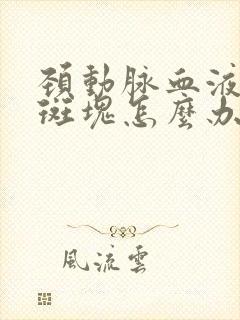 頚動脉血液
斑塊怎麼办
風流雲